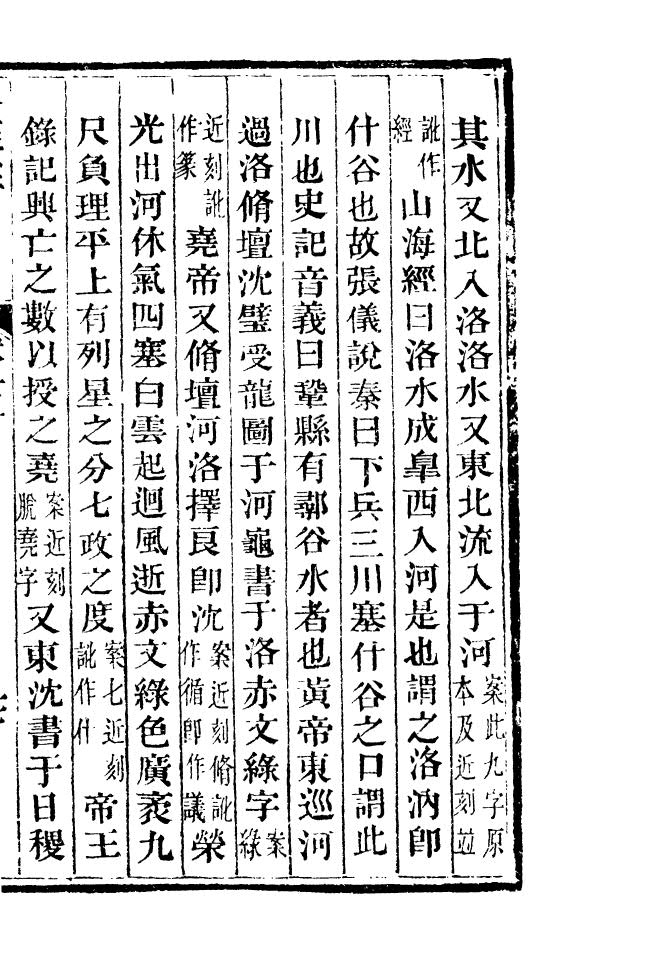 其水又北入洛洛水又東北流入于河案此九字原本及近刻並
訛作經山海經曰洛水成皐西入河是也謂之洛汭卽
什谷也故張儀說秦曰下兵三川塞什谷之口謂此
川也史記音義曰鞏縣有鄩谷水者也黃帝東巡河
過洛脩壇沈璧受龍圖于河龜書于洛赤文綠字案綠
近刻訛作篆堯帝又脩壇河洛擇良卽沈案近刻脩訛作循卽作議榮
光出河休氣四塞白雲起迴風逝赤文綠色廣袤九
尺負理平上有列星之分七政之度案七近刻訛作什帝王
錄記興亡之數以授之堯案近刻脫堯字又東沈書于日稷